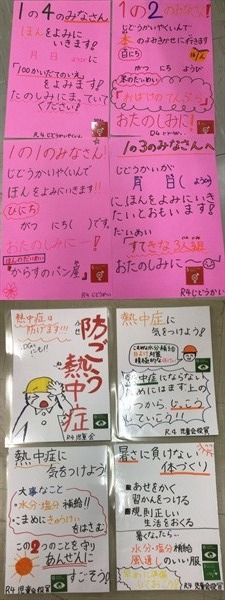 1の4のみなさん
ほんをよみに
いきます!
月 日
「100かいだてのいえ」
をよみます!
たのしみにまっていてく
ださい!
R.4じどうかいやくいん
1の2のみなさん!
じどうかいやくいんで
本のよみきかせに行きます
日にち
がつ にち ようび
本のだいめい
かばけのてんぷら
おたのしみに!
1の1のみなさん!
じどうかいやくいんで
ほんをよみにいきます!!
ひにち
がつ にち( )です。
おたのしみにー!
ほんのだいめい
"からすのパン屋"
R4じどうかい
1の3のみなさんへ
じどうかいが
月 日(ようび)
に、ほんをよみにいき
たいとおもいます!
だいめい
すてきな3人組
おたのしみに
R4じどうかい
熱中症は
防げます!!!
防ごう
熱中症
R4 児童会
熱中症に
気をつけよう!
こまめな水分補給
熱中症にならない
ためにはまず上の
2つから、じっこう
していこう!!
R.4 児童会役員
熱中症に
気をつけよう!
大事なこと
・水分・塩分補給!!
・こまめにきゅうけい
をはさむ
この2つのことを守り
あんぜんに
すごそう!
R4 児童会役員
暑さに負けない
体づくり
・あせをかく
習かんをつける
・規則正しい
生活をおくる
暑くなったら…
水分・塩分補給
風通しのいい服
R4 児童会役員